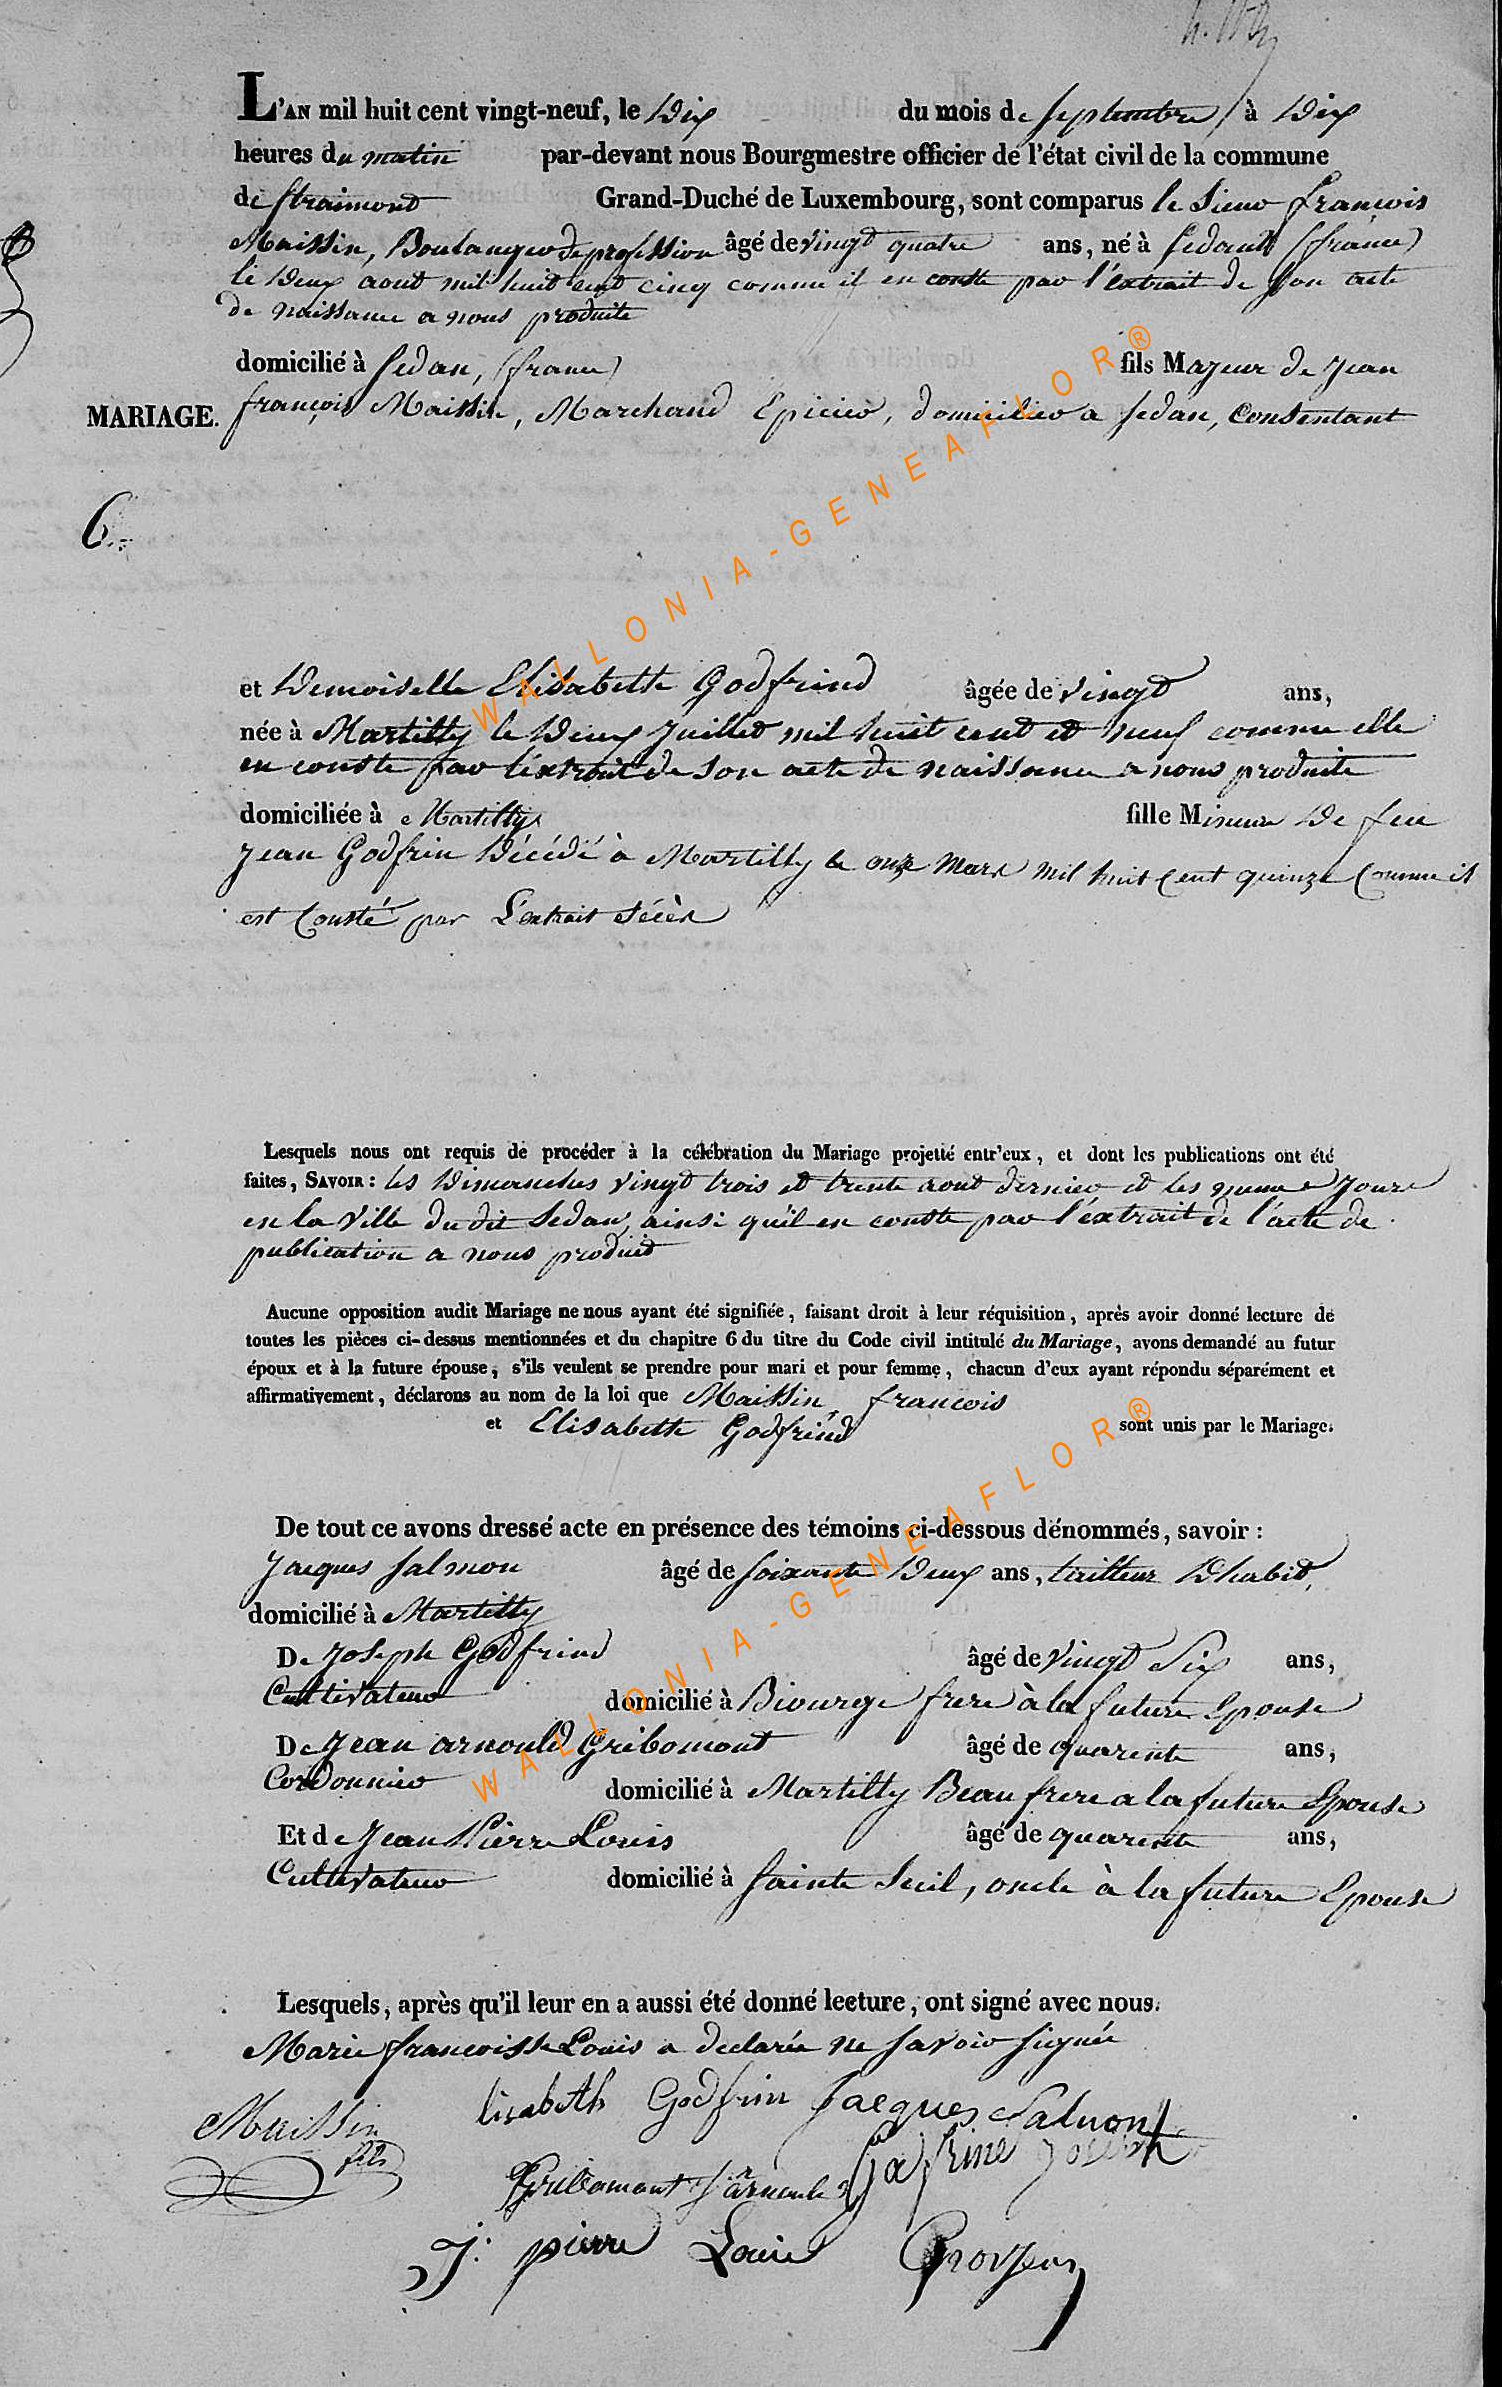 L'AN mil huit cent vingt-neuf, le Dix du mois de septembre à Dix
heures du matin par-devant nous Bourgmestre officier de l'état civil de la commune
de straimont Grand-Duché de Luxembourg, sont comparus le Sieur françois
Maissin, Boulanger de profession âgé de vingt quatre ans, né à Sedan (france)
le Deux aout mil huit cent cinq comme il en conste par l'extrait de son acte
de naissance a nous produite
domicilié à Sedan, (france) fils Majeur de Jean
MARIAGE. françois Maissin, Marchand Epicier, domicilier a sedan, Consentant
6.
et Demoiselle Elisabette Godfrind âgée de vingt ans,
née à Martilly le Deux Juillet mil huit cent et neuf comme elle
en conste par l'extrait de son acte de naissance a nous produite
domiciliée à Martilly fille Mineure De feu
Jean Godfrin Décédé à Martilly le onze Mars mil huit Cent quinze Comme il
est Consté par L'extrait décès
Lesquels nous ont requis de procéder à la célébration du Mariage projetté entr'eux, et dont les publications ont été
faites, SAVOIR : les Dimanches vingt trois et trente aout dernier et les meme Jours
en la Ville du dit Sedan, ainsi qu'il en conste par l'extrait de l'acte de
publication a nous produit
Aucune opposition audit Mariage ne nous ayant été signifiée, faisant droit à leur réquisition, après avoir donné lecture de
toutes les pièces ci-dessus mentionnées et du chapitre 6 du titre du Code civil intitulé du Mariage, avons demandé au futur
époux et à la future épouse, s'ils veulent se prendre pour mari et pour femme, chacun d'eux ayant répondu séparément et
affirmativement, déclarons au nom de la loi que Maissin, francois
et Elisabette Godfrind sont unis par le Mariage.
De tout ce avons dressé acte en présence des témoins ci-dessous dénommés, savoir :
Jacques Salmon âgé de soixante Deux ans, tailleur Dhabit,
domicilié à Martilly
De Joseph Godfrind âgé de vingt Six ans,
Cultivateur domicilié à Biourge frere à la future Epouse
De Jean arnould Gribomont âgé de quarente ans,
Cordonnier domicilié à Martilly Beau frere a la future Epouse
Et de Jean Pierre Louis âgé de quarente ans,
Cultivateur domicilié à Sainte Seuil, oncle à la future Epouse
Lesquels, après qu'il leur en a aussi été donné lecture, ont signé avec nous.
Marie francoisse Louis a declarée ne savoir signée
Maissin fils lisabeth Godfrin Jacques Salmon
Gribomont J arnould Godfrine Joseph
J. pierre Louis
WALLONIA-GENEAFLOR®
WALLONIA-GENEAFLOR®